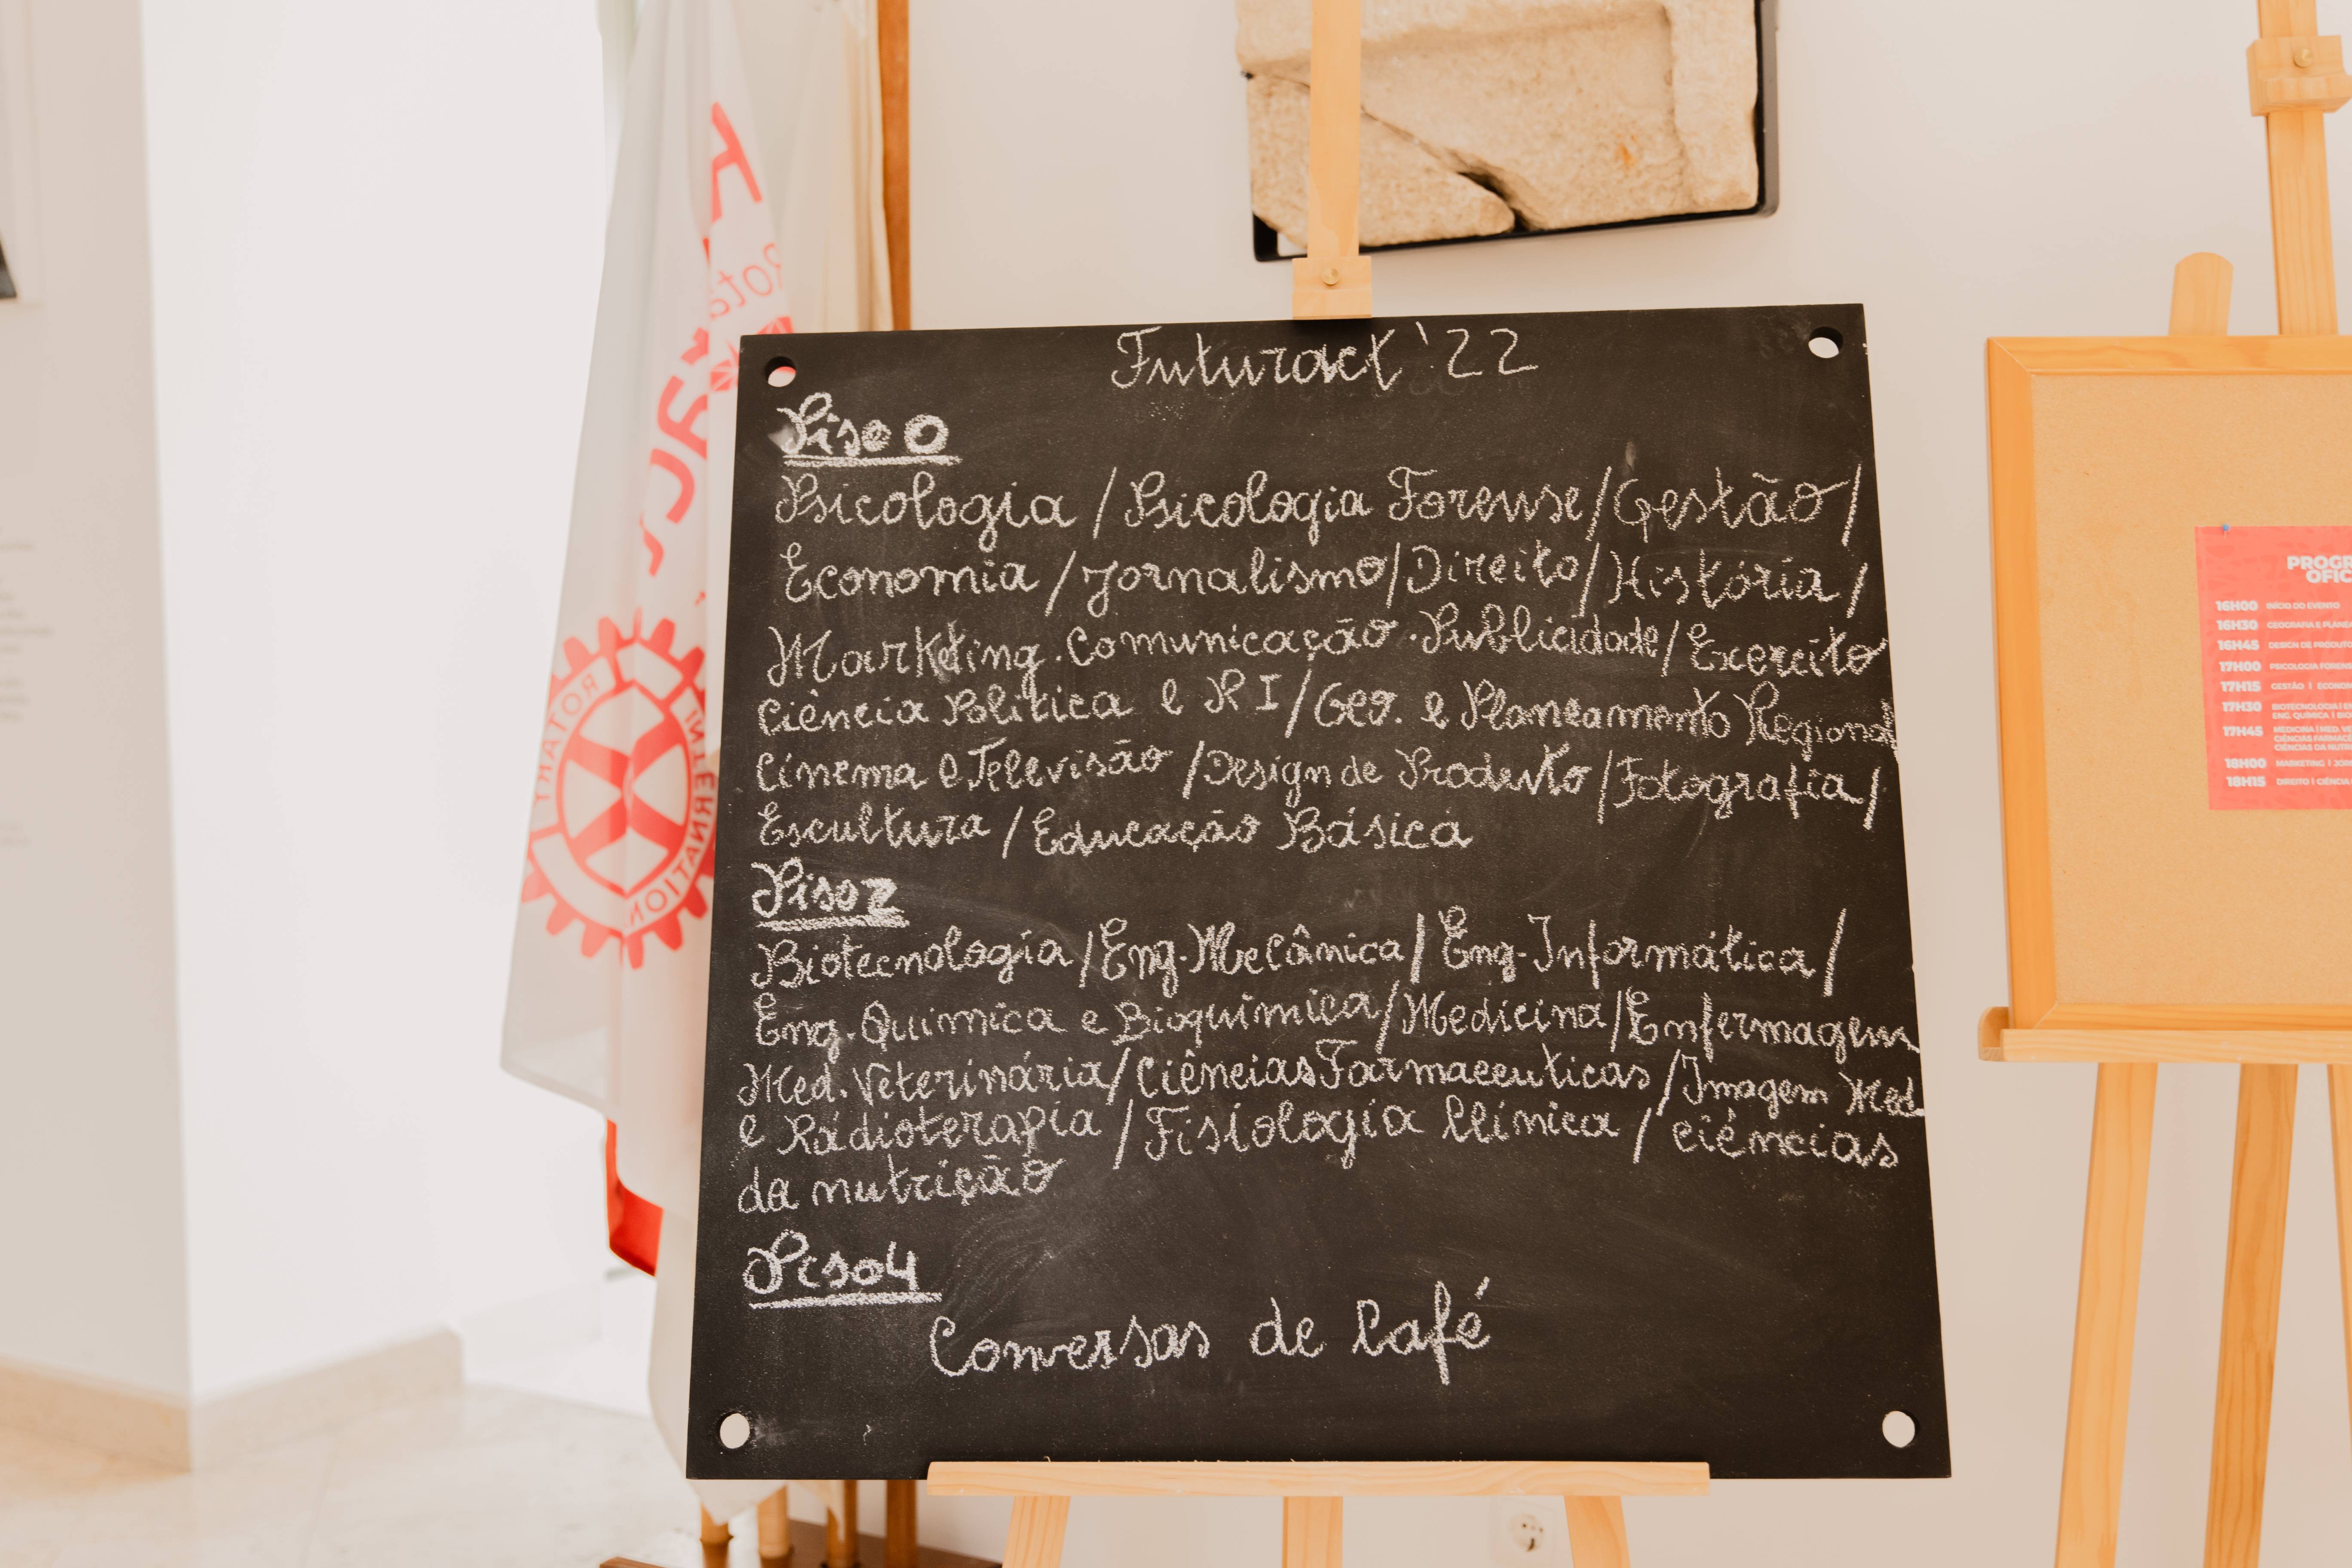 Futuract '22
Piso 0
Psicologia / Psicologia Forense / Gestão /
Economia / Jornalismo / Direito / História /
Marketing. Comunicação. Publicidade / Exercito
Ciência Politica e RI / Geo. e Planeamento Regional
Cinema e Televisão / Design de Produto / Fotografia /
Escultura / Educação Básica
Piso 2
Biotecnologia / Eng. Mecânica / Eng. Informática /
Eng. Quimica e Bioquimica / Medicina / Enfermagem
Med. Veterinária / Ciências Farmaceuticas / Imagem Med.
e Radioterapia / Fisiologia Clinica / Ciências
da nutrição
Piso 4
Conversas de Café
ROTARY
INTERNATION
PROGR
OFIC
16H00 INÍCIO DO EVENTO
16H30 GEOGRAFIA E PLANEA
16H45 DESIGN DE PRODUTO
17H00 PSICOLOGIA FORENS
17H15 GESTÃO | ECONOM
17H30 BIOTECNOLOGIA | EN
ENG. QUÍMICA | BIO
17H45 MEDICINA | MED. VE
CIÊNCIAS FARMACÊ
CIÊNCIAS DA NUTRI
18H00 MARKETING | JOR
18H15 DIREITO | CIÊNCIA